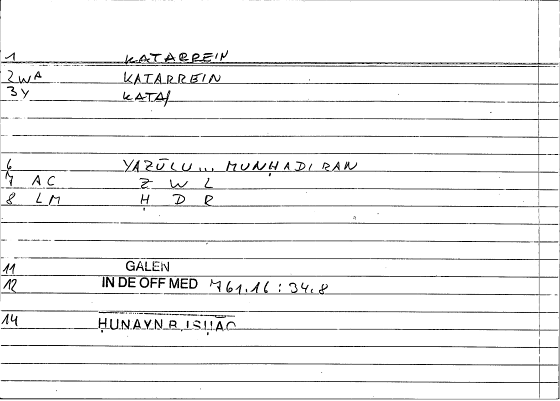 1 KATARREIN
2 WA KATARREIN
3 Y KATA/
6 YAZŪLU... MUNḤADIRAN
7 AC Z W L
8 LM Ḥ D R
11 GALEN
12 IN DE OFF MED 761.16 : 34.8
14 ḤUNAYN B. ISḤĀQ